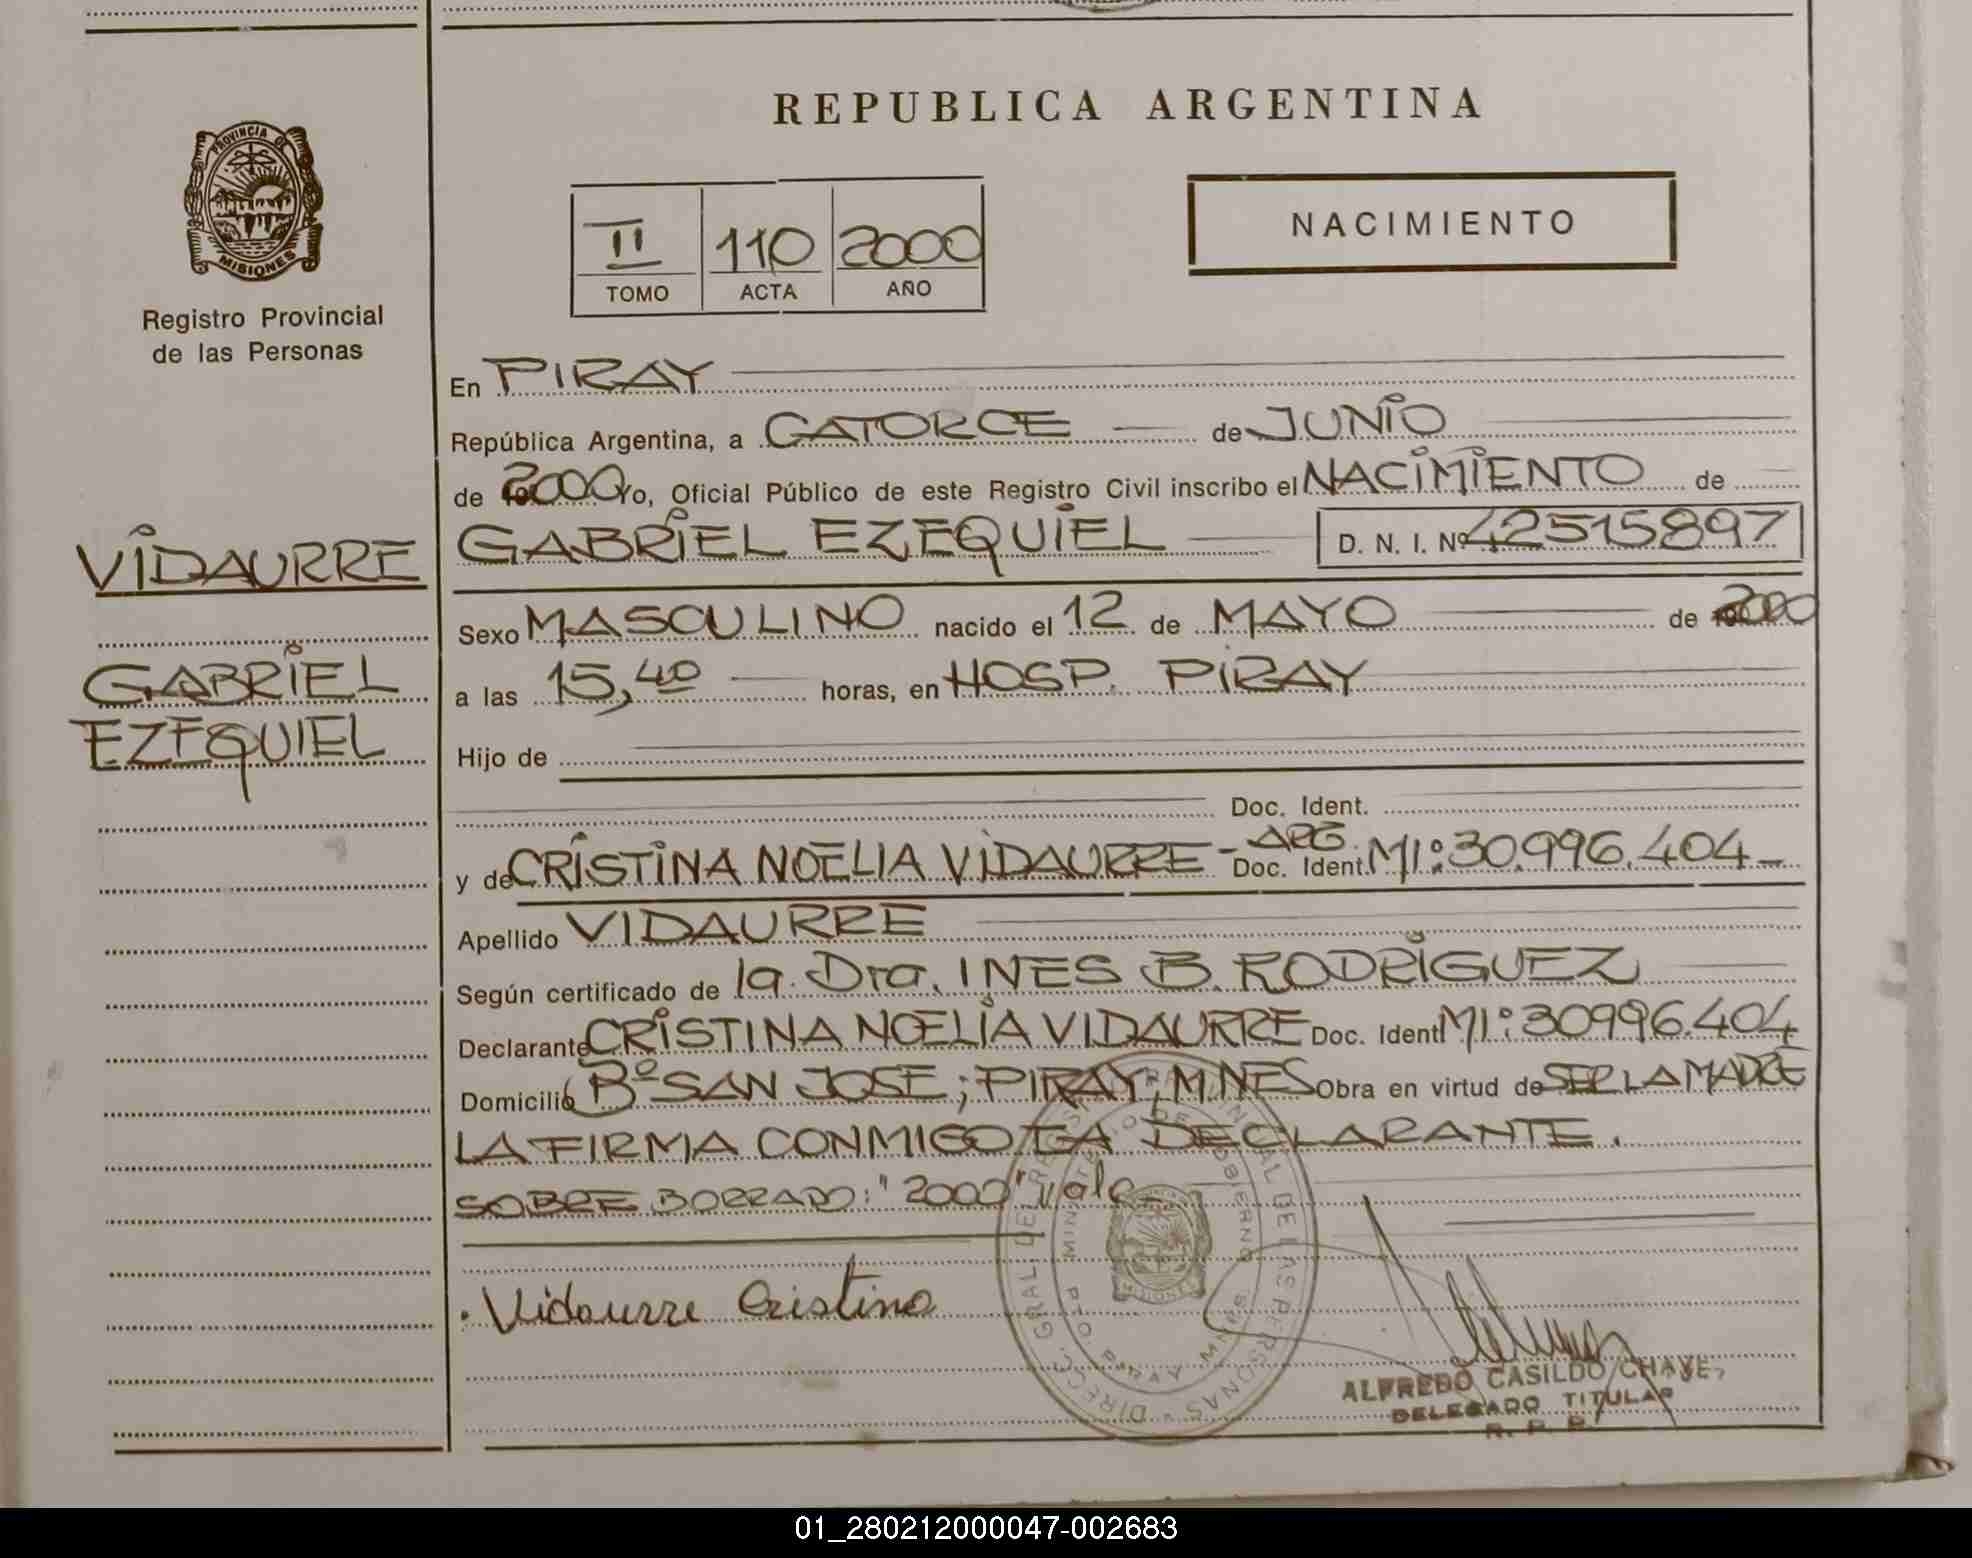 REPUBLICA ARGENTINA
PROVINCIA DE
MISIONES
Registro Provincial
de las Personas
II 110 2000
TOMO ACTA AÑO
NACIMIENTO
En PIRAY
República Argentina, a CATORCE de JUNIO
de 2000 Yo, Oficial Público de este Registro Civil inscribo el NACIMIENTO de
VIDAURRE
GABRIEL EZEQUIEL D. N. I. Nº 42515897
Sexo MASCULINO nacido el 12 de MAYO de 2000
GABRIEL
EZEQUIEL
a las 15,40 horas, en HOSP. PIRAY
Hijo de
Doc. Ident.
y de CRISTINA NOELIA VIDAURRE - ARG. Doc. Ident. MI: 30.996.404-
Apellido VIDAURRE
Según certificado de la. Dra. INES B. RODRIGUEZ
Declarante CRISTINA NOELIA VIDAURRE Doc. Ident MI: 30996.404
Domicilio Bº SAN JOSE; PIRAY; MNES Obra en virtud de SER LA MADRE
LA FIRMA CONMIGO LA DECLARANTE.
SOBRE BORRADO: "2000" vale
Vidaurre Cristina
MINISTERIO DE GOBIERNO
ALFREDO CASILDO CHAVEZ
DELEGADO TITULAR
R. P. P.
01_280212000047-002683